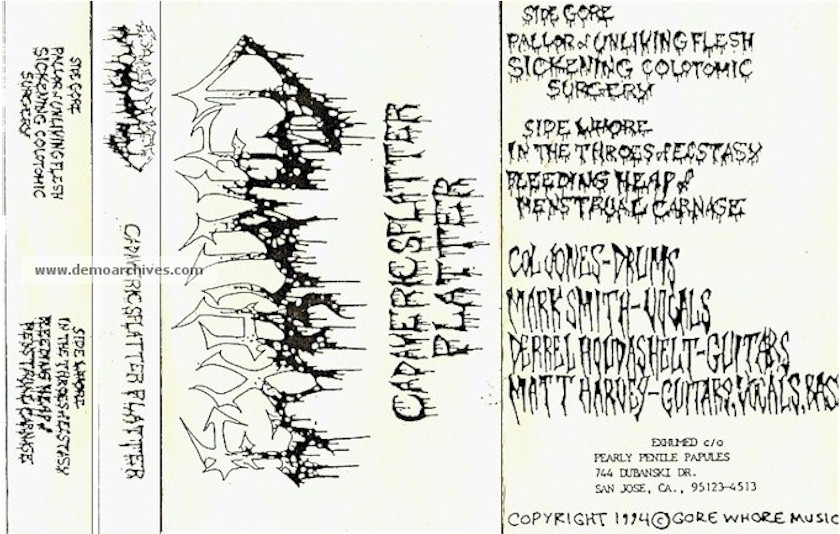 SIDE GORE
PALLOR of UNLIVING FLESH
SICKENING COLOTOMIC
SURGERY
SIDE WHORE
IN THE THROES of ECSTASY
BLEEDING HEAP of
MENSTRUAL CARNAGE
EXHUMED
CADAVERIC SPLATTER PLATTER
EXHUMED
CADAVERIC SPLATTER
PLATTER
SIDE GORE
PALLOR of UNLIVING FLESH
SICKENING COLOTOMIC
SURGERY
SIDE WHORE
IN THE THROES of ECSTASY
BLEEDING HEAP of
MENSTRUAL CARNAGE
COL JONES-DRUMS
MARK SMITH-VOCALS
DERREL HOUDASHELT-GUITARS
MATT HARVEY-GUITARS, VOCALS, BAS
EXHUMED c/o
PEARLY PENILE PAPULES
744 DUBANSKI DR.
SAN JOSE, CA., 95123-4513
COPYRIGHT 1994 © GORE WHORE MUSIC
www.demoarchives.com